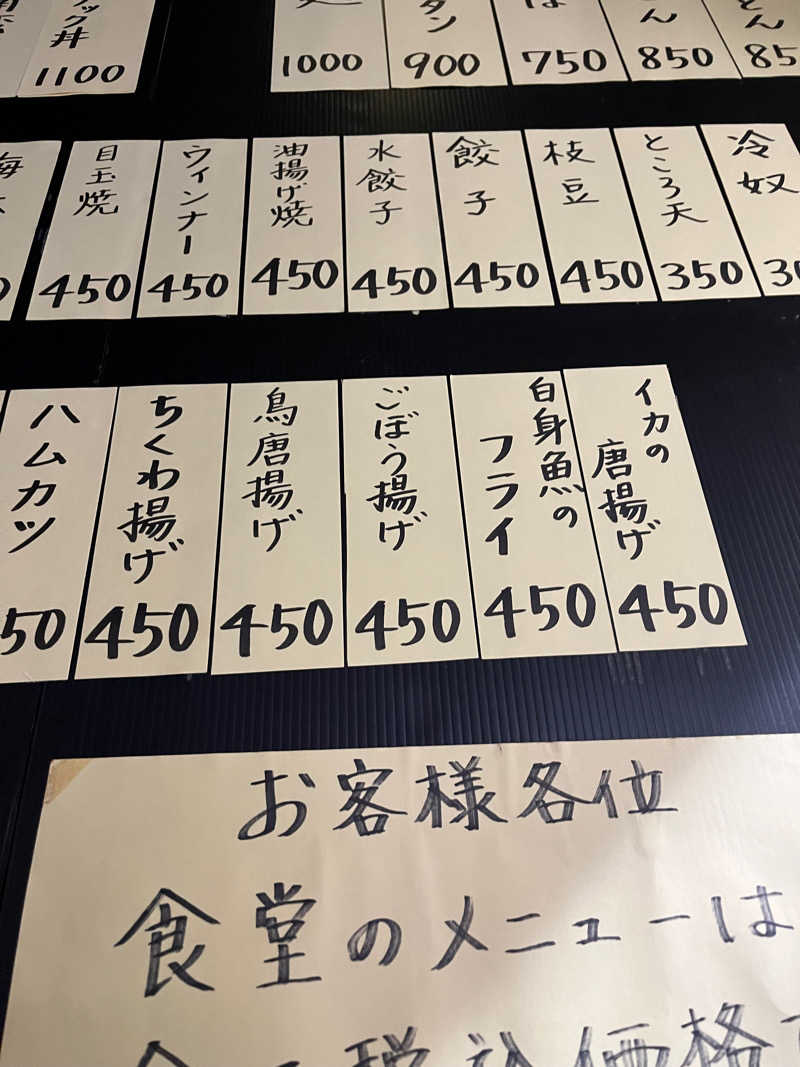 ック丼
1100
1000
タン
900
750
ん
850
どん
85
目玉焼
450
ウィンナー
450
油揚げ焼
450
水餃子
450
餃子
450
枝豆
450
ところ天
350
冷奴
30
ハムカツ
50
ちくわ揚げ
450
鳥唐揚げ
450
ごぼう揚げ
450
白身魚の
フライ
450
イカの
唐揚げ
450
お客様各位
食堂のメニューは
税込価格